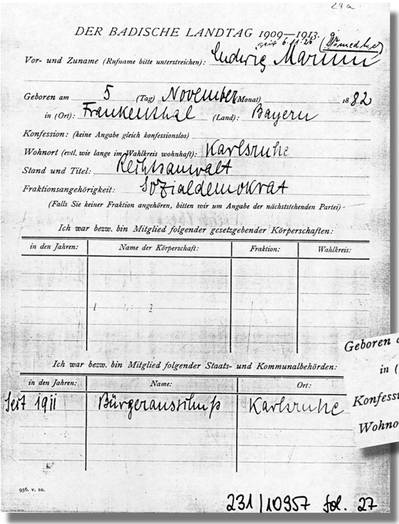 29a
DER BADISCHE LANDTAG 1909—1913.
Vor- und Zuname (Rufname bitte unterstreichen): Ludwig Marum
Geboren am 5 (Tag) November (Monat) 1882
in (Ort): Frankenthal (Land): Bayern
Konfession: (keine Angabe gleich konfessionslos)
Wohnort (evtl. wie lange im Wahlkreis wohnhaft): Karlsruhe
Stand und Titel: Rechtsanwalt
Fraktionsangehörigkeit: Sozialdemokrat
(Falls Sie keiner Fraktion angehören, bitten wir um Angabe der nächststehenden Partei)
Ich war bezw. bin Mitglied folgender gesetzgebender Körperschaften:
in den Jahren: Name der Körperschaft: Fraktion: Wahlkreis:
Ich war bezw. bin Mitglied folgender Staats- und Kommunalbehörden:
in den Jahren: Name: Ort:
Seit 1911 Bürgerausschuß Karlsruhe
956. v. 20.
231/10957 fol. 27
Geboren
in (
Konfessi
Wohnor